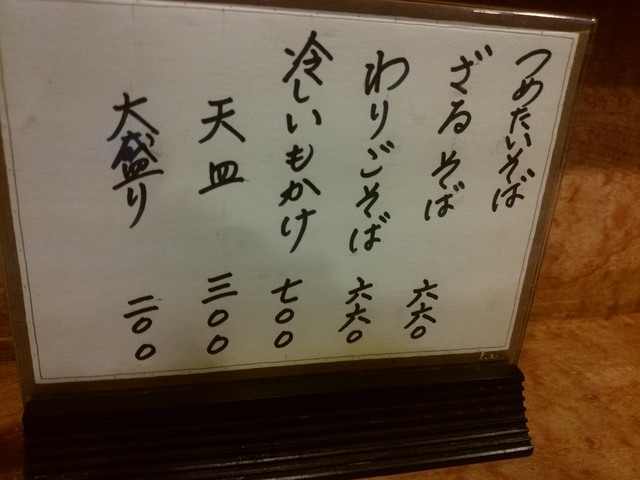 つめたいそば
ざるそば 六六〇
わりごそば 六六〇
冷しいもかけ 七〇〇
天皿 三〇〇
大盛り 二〇〇